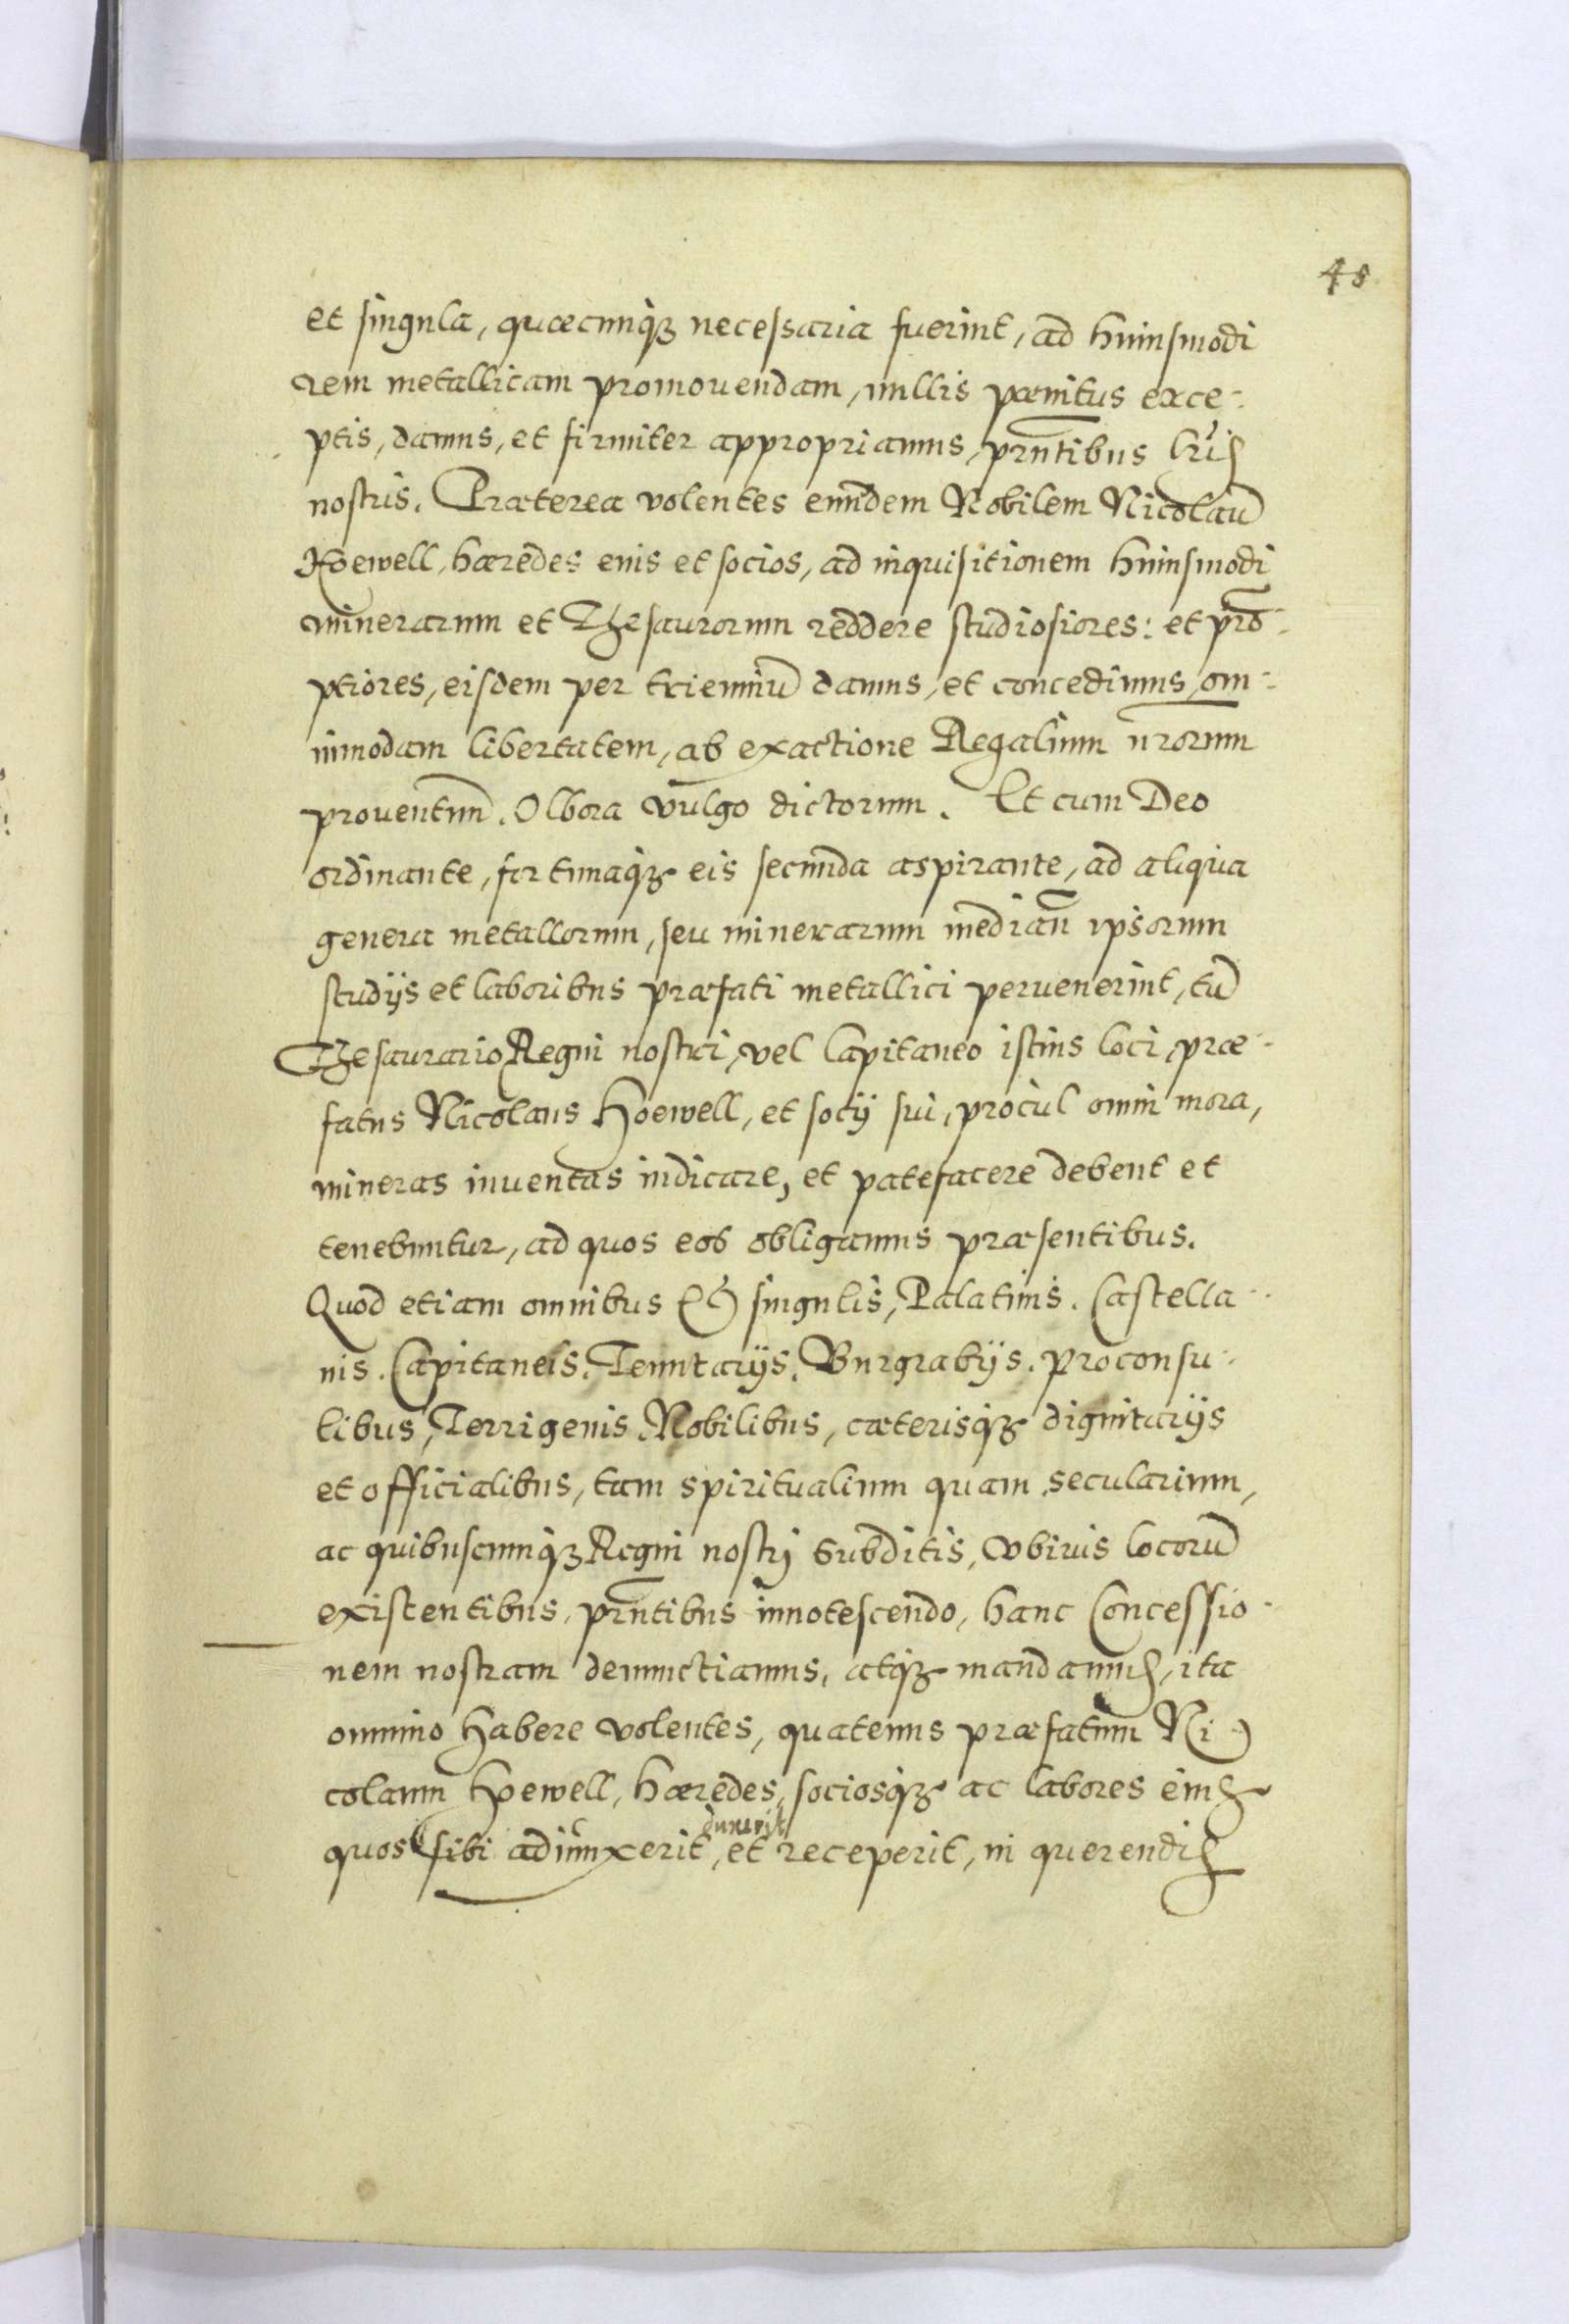 48
et singula, quæcunq₃ necessaria fuerint, ad huiusmodi
rem metallicam promouendam, nullis pœnitus exce-
ptis, damus, et firmiter appropriamus, pn̄tibus lr̄is
nostris. Præterea volentes eundem Nobilem Nicolaū
Hoewell, hæredes eius et socios, ad inquisitionem huiusmodi
minerarum et Thesaurorum reddere studiosiores: et prō-
ptiores, eisdem per trienniū damus, et concedimus, om-
nimodam libertatem, ab exactione Regalium nr̄orum
prouentuum. Olbora vulgo dictorum. Et cum Deo
ordinante, fortunaq₃ eis secunda aspirante, ad aliqua
genera metallorum, seu minerarum median̄ ipsorum
studijs et laboribus præfati metallici peruenerint, tū
Thesaurario Regni nostri, vel Capitaneo istius loci, præ-
fatus Nicolaus Hoewell, et socij sui, procul omni mora,
mineras inuentas indicare, et patefacere debent et
tenebuntur, ad quos eos obligamus præsentibus.
Quod etiam omnibus et singulis, Palatinis. Castella-
nis. Capitaneis. Tenutarijs. Burgrabijs. proconsu-
libus, Terrigenis Nobilibus, cæterisq₃ dignitarijs
et officialibus, tam spiritualium quam secularium,
ac quibuscunq₃ Regni nostrj Subditis, vbiuis locorū
existentibus, pn̄tibus innotescendo, hanc Concessio-
nem nostram denunctiamus, atq₃ mandamus, ita
omnino habere volentes, quatenus præfatum Ni-
colaum Hoewell, hæredes, sociosq₃ ac labores eius
duxerit
quos sibi adiunxerit, et receperit, in querendis